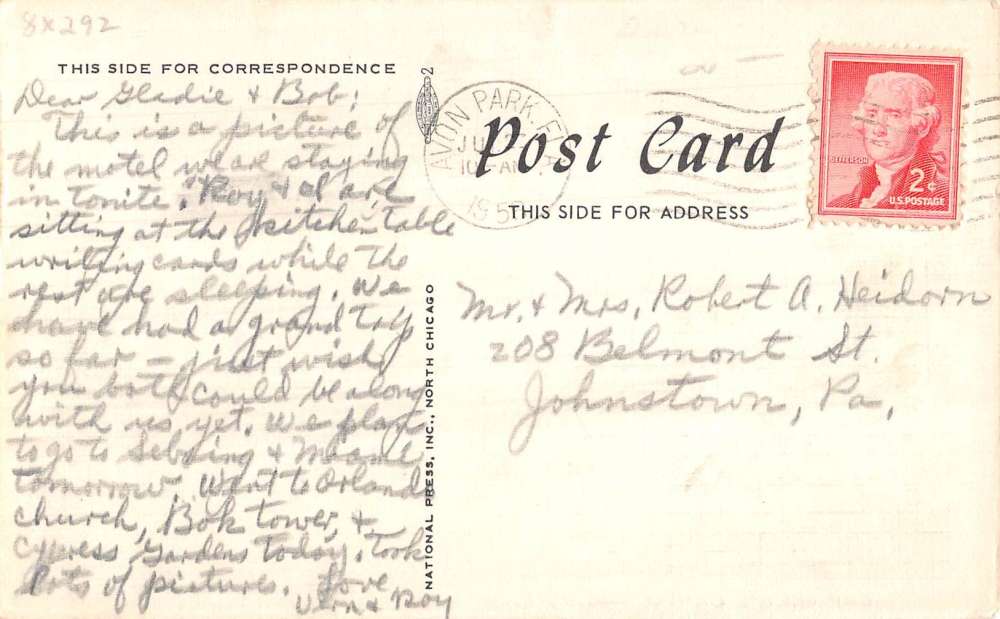 8x292
THIS SIDE FOR CORRESPONDENCE
Dear Gladie & Bob:
This is a picture of
the motel we are staying
in tonite. Roy & I are
sitting at the kitchen table
writing cards while the
rest are sleeping. We
have had a grand trip
so far – just wish
you both could be along
with us, yet. We plan
to go to Sebring & Miami
tomorrow. Went to Orlando
church, Bok tower, &
Cypress Gardens today. Took
lots of pictures. Love,
Vern & Roy
2
NATIONAL PRESS, INC., NORTH CHICAGO
AVON PARK, FL
10 AM
195
Post Card
THIS SIDE FOR ADDRESS
JEFFERSON
2¢
U.S. POSTAGE
Mr. & Mrs. Robert A. Heidorn
208 Belmont St.
Johnstown, Pa.